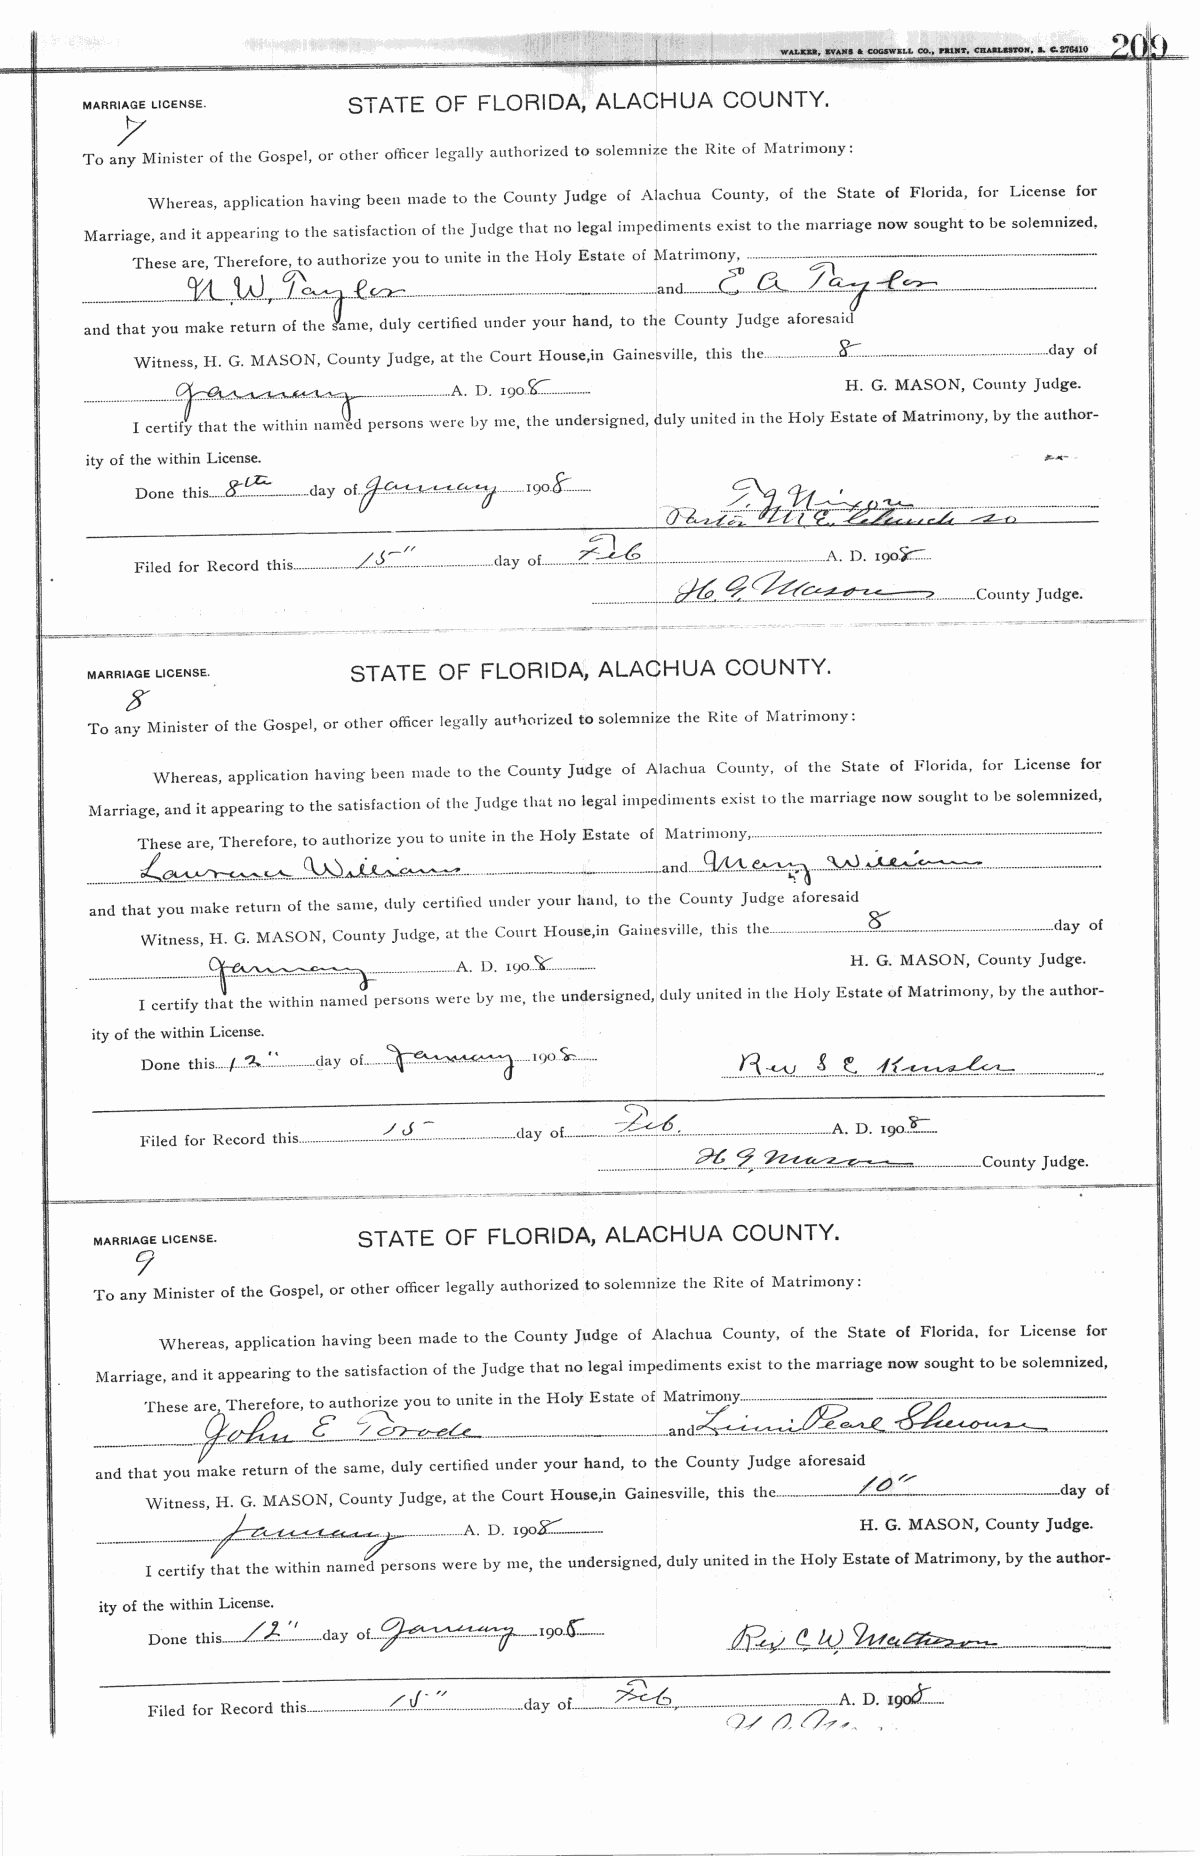 WALKER, EVANS & COGSWELL CO., PRINT, CHARLESTON, S. C. 276410 209
MARRIAGE LICENSE. STATE OF FLORIDA, ALACHUA COUNTY.
7
To any Minister of the Gospel, or other officer legally authorized to solemnize the Rite of Matrimony:
Whereas, application having been made to the County Judge of Alachua County, of the State of Florida, for License for
Marriage, and it appearing to the satisfaction of the Judge that no legal impediments exist to the marriage now sought to be solemnized,
These are, Therefore, to authorize you to unite in the Holy Estate of Matrimony,
N. W. Taylor and E A Taylor
and that you make return of the same, duly certified under your hand, to the County Judge aforesaid
Witness, H. G. MASON, County Judge, at the Court House, in Gainesville, this the 8 day of
January A. D. 1908 H. G. MASON, County Judge.
I certify that the within named persons were by me, the undersigned, duly united in the Holy Estate of Matrimony, by the author-
ity of the within License.
Done this 8th day of January 1908 T. J Nixon
Pastor M. E. Church So
Filed for Record this 15" day of Feb A. D. 1908
H. G. Mason County Judge.
MARRIAGE LICENSE. STATE OF FLORIDA, ALACHUA COUNTY.
8
To any Minister of the Gospel, or other officer legally authorized to solemnize the Rite of Matrimony:
Whereas, application having been made to the County Judge of Alachua County, of the State of Florida, for License for
Marriage, and it appearing to the satisfaction of the Judge that no legal impediments exist to the marriage now sought to be solemnized,
These are, Therefore, to authorize you to unite in the Holy Estate of Matrimony,
Lawrence Williams and Mary Williams
and that you make return of the same, duly certified under your hand, to the County Judge aforesaid
Witness, H. G. MASON, County Judge, at the Court House, in Gainesville, this the 8 day of
January A. D. 1908 H. G. MASON, County Judge.
I certify that the within named persons were by me, the undersigned, duly united in the Holy Estate of Matrimony, by the author-
ity of the within License.
Done this 12" day of January 1908 Rev S E Kinsler
Filed for Record this 15 day of Feb. A. D. 1908
H G. Mason County Judge.
MARRIAGE LICENSE. STATE OF FLORIDA, ALACHUA COUNTY.
9
To any Minister of the Gospel, or other officer legally authorized to solemnize the Rite of Matrimony:
Whereas, application having been made to the County Judge of Alachua County, of the State of Florida, for License for
Marriage, and it appearing to the satisfaction of the Judge that no legal impediments exist to the marriage now sought to be solemnized,
These are, Therefore, to authorize you to unite in the Holy Estate of Matrimony
John E Torode and Pearl Sherouse
and that you make return of the same, duly certified under your hand, to the County Judge aforesaid
Witness, H. G. MASON, County Judge, at the Court House, in Gainesville, this the 10" day of
January A. D. 1908 H. G. MASON, County Judge.
I certify that the within named persons were by me, the undersigned, duly united in the Holy Estate of Matrimony, by the author-
ity of the within License.
Done this 12" day of January 1908 Rev. C. W. Matheson
Filed for Record this 15" day of Feb. A. D. 1908